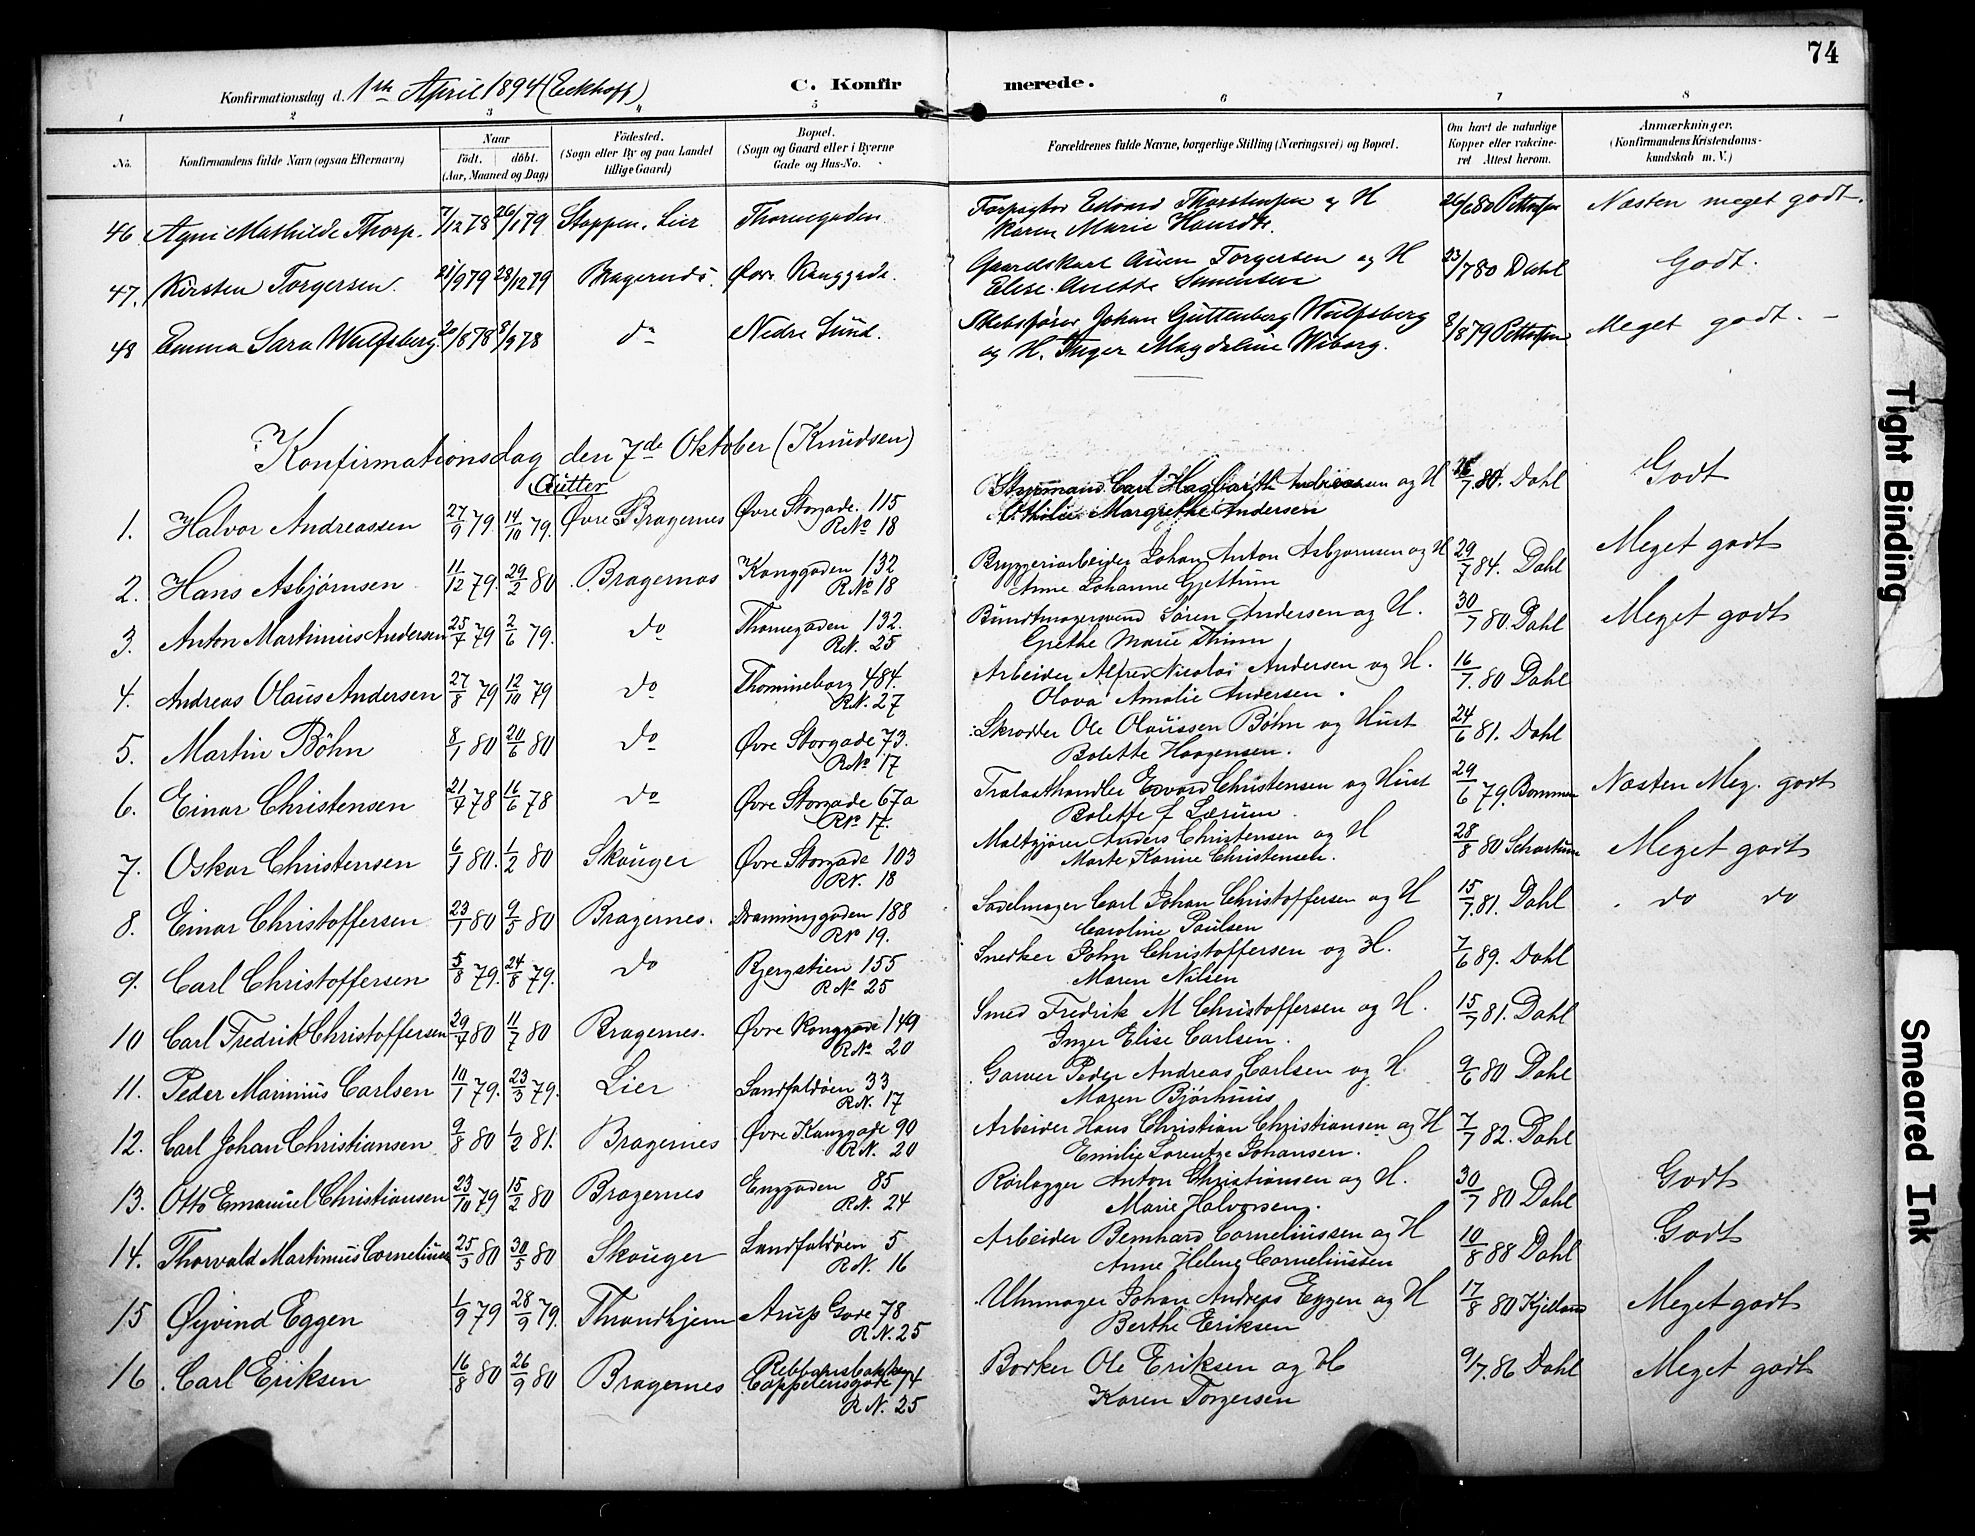 74
Konfirmationsdag d. 1ste April 1894 (Eckhoff)
C. Konfirmerede.
1 2 3 4 5 6 7 8
No. Konfirmandens fulde Navn (ogsaa Efternavn) Naar født. døbt. (Aar, Maaned og Dag) Fødested. (Sogn eller By og paa Landet tillige Gaard) Bopæl. (Sogn og Gaard eller i Byerne Gade og Hus-No. Forældrenes fulde Navne, borgerlige Stilling (Næringsvei) og Bopæl. Om havt de naturlige Kopper eller vakcineret Attest herom. Anmærkninger. (Konfirmandens Kristendomskundskab m. V.)
46 Agni Mathilde Thorp. 7/12 78 26/1 79 Stoppen, Lier Thornegaden Forpagter Edvard Thorstensen og H 26/6 80 Næsten meget godt.
Karen Marie
47. Kirsten Torgersen. 28/12 79 Bragernæs. Øvre Konggade. Gaardskarl Torgersen og H 23/7 80 Dahl Godt.
Elise Anette Simensen
48 Emma Sara Wulfsberg. 20/8 78 8/9 78 do Nedre Sund. Skibsfører Johan Guttenberg Wulfsberg 2/8 79 Meget godt. –
og H. Inger Magdaline Wiborg.
Konfirmationsdag den 7de Oktober (Knudsen)
Gutter
1. Halvor Andreassen 27/9 79. 14/10 79. Øvre Bragernes Øvre Storgade. 115 Styrmand Carl Hagbarth og H 7 80. Dahl Godt
R No 18 Othilie Margrethe Andersen
2. Hans Asbjørnsen 11/12 79. 29/2 80 Bragernas Konggaden 132 Bryggeriarbeider Johan Anton Asbjørnsen og H 29/7 84. Dahl Meget godt
R No 18 Anne Johanne Gjettum
3. Anton Martinius Andersen 25/4 79 2/6 79. do Thornegaden 132. Buntmagersvend Søren Andersen og H. 30/7 80 Dahl Meget godt
R N. 25 Grethe Marie
4. Andreas Olaus Andersen 27/8 79 12/10 79 do Thomineborg 484. Arbeider Alfred Nicolai Andersen og H. 16/7. 80 Dahl
R N. 27 Olava Amalie Andersen.
5. Martin Bøhn 8/1 80 20/6 80 do Øvre Storgade 73. Skrædder Ole Olaussen Bøhn og Hust 24/6 81. Dahl
R No 17 Bolette Haagensen.
6. Einar Christensen 21/4 78 16/6 78 do Øvre Storgade 67a Trælasthandler Edvard Christensen og Hust 29/6 79. Næsten Meg. godt
R No 17. Bolette f. Lærum.
7. Oskar Christensen 6/1 80. 1/2 80 Skouger Øvre Storgade 103 Maltgjører Anders Christensen og H 28/8 80 Schartum Meget godt
R N. 18 Marte Karine Christensen.
8. Einar Christoffersen 23/1 80 9/5 80 Bragernes. Dronninggaden 188 Sadelmager Carl Johan Christoffersen og H 15/7. 81. Dahl do do
R No 19. Caroline Paulsen
9. Carl Christoffersen 5/8 79. 24/8 79. do Bjergstien 155 Snedker John Christoffersen og H. 7/6 89. Dahl
R No 25 Maren Nilsen
10 Carl Fredrik Christoffersen 29/4 80 11/7 80 Bragernes. Øvre Konggade 149 Smed Fredrik M Christoffersen og H. 15/7 81. Dahl
R No 20 Inger Elise Carlsen.
11. Peder Marinius Carlsen 10/1 79. 23/3 79. Lier Landfaldøen 33 Garver Peder Andreas Carlsen og H. 9/6 80 Dahl
R N. 17 Maren Bjørhuus
12. Carl Johan Christiansen 9/8 80 1/2 81. Bragernes Øvre Konggade 90 Arbeider Hans Christian Christiansen og H 7/7 82. Dahl
R N. 20 Emilie Lorentze Johansen.
13. Otto Emanuel Christiansen 23/10 79 15/2 80 Bragernes Enggaden 85 Rørlægger Anton Christiansen og H. 30/7 80 Dahl Godt
R N. 24 Marie Halvorsen.
14. Thorvald Martinius Cornelius 25/3 80 30/5 80 Skouger Landfaldøen 5 Arbeider Bernhard Corneliussen og H 10/8 88 Dahl Godt
R N. 16 Anne Helene Corneliussen
15 Øyvind Eggen 1/9 79 28/9 79. Throndhjem Arups Gade 78 Uhrmager Johan Andreas Eggen og H 17/8 80 Kjelland Meget godt
R N. 25 Berthe Eriksen
16. Carl Eriksen 16/8 80 26/9 80 Bragernes Cappelensgade 74 Bødker Ole Eriksen og H 9/7. 86 Dahl Meget godt
R N. 25 Karen Torgersen
Tight Binding
Smeared Ink